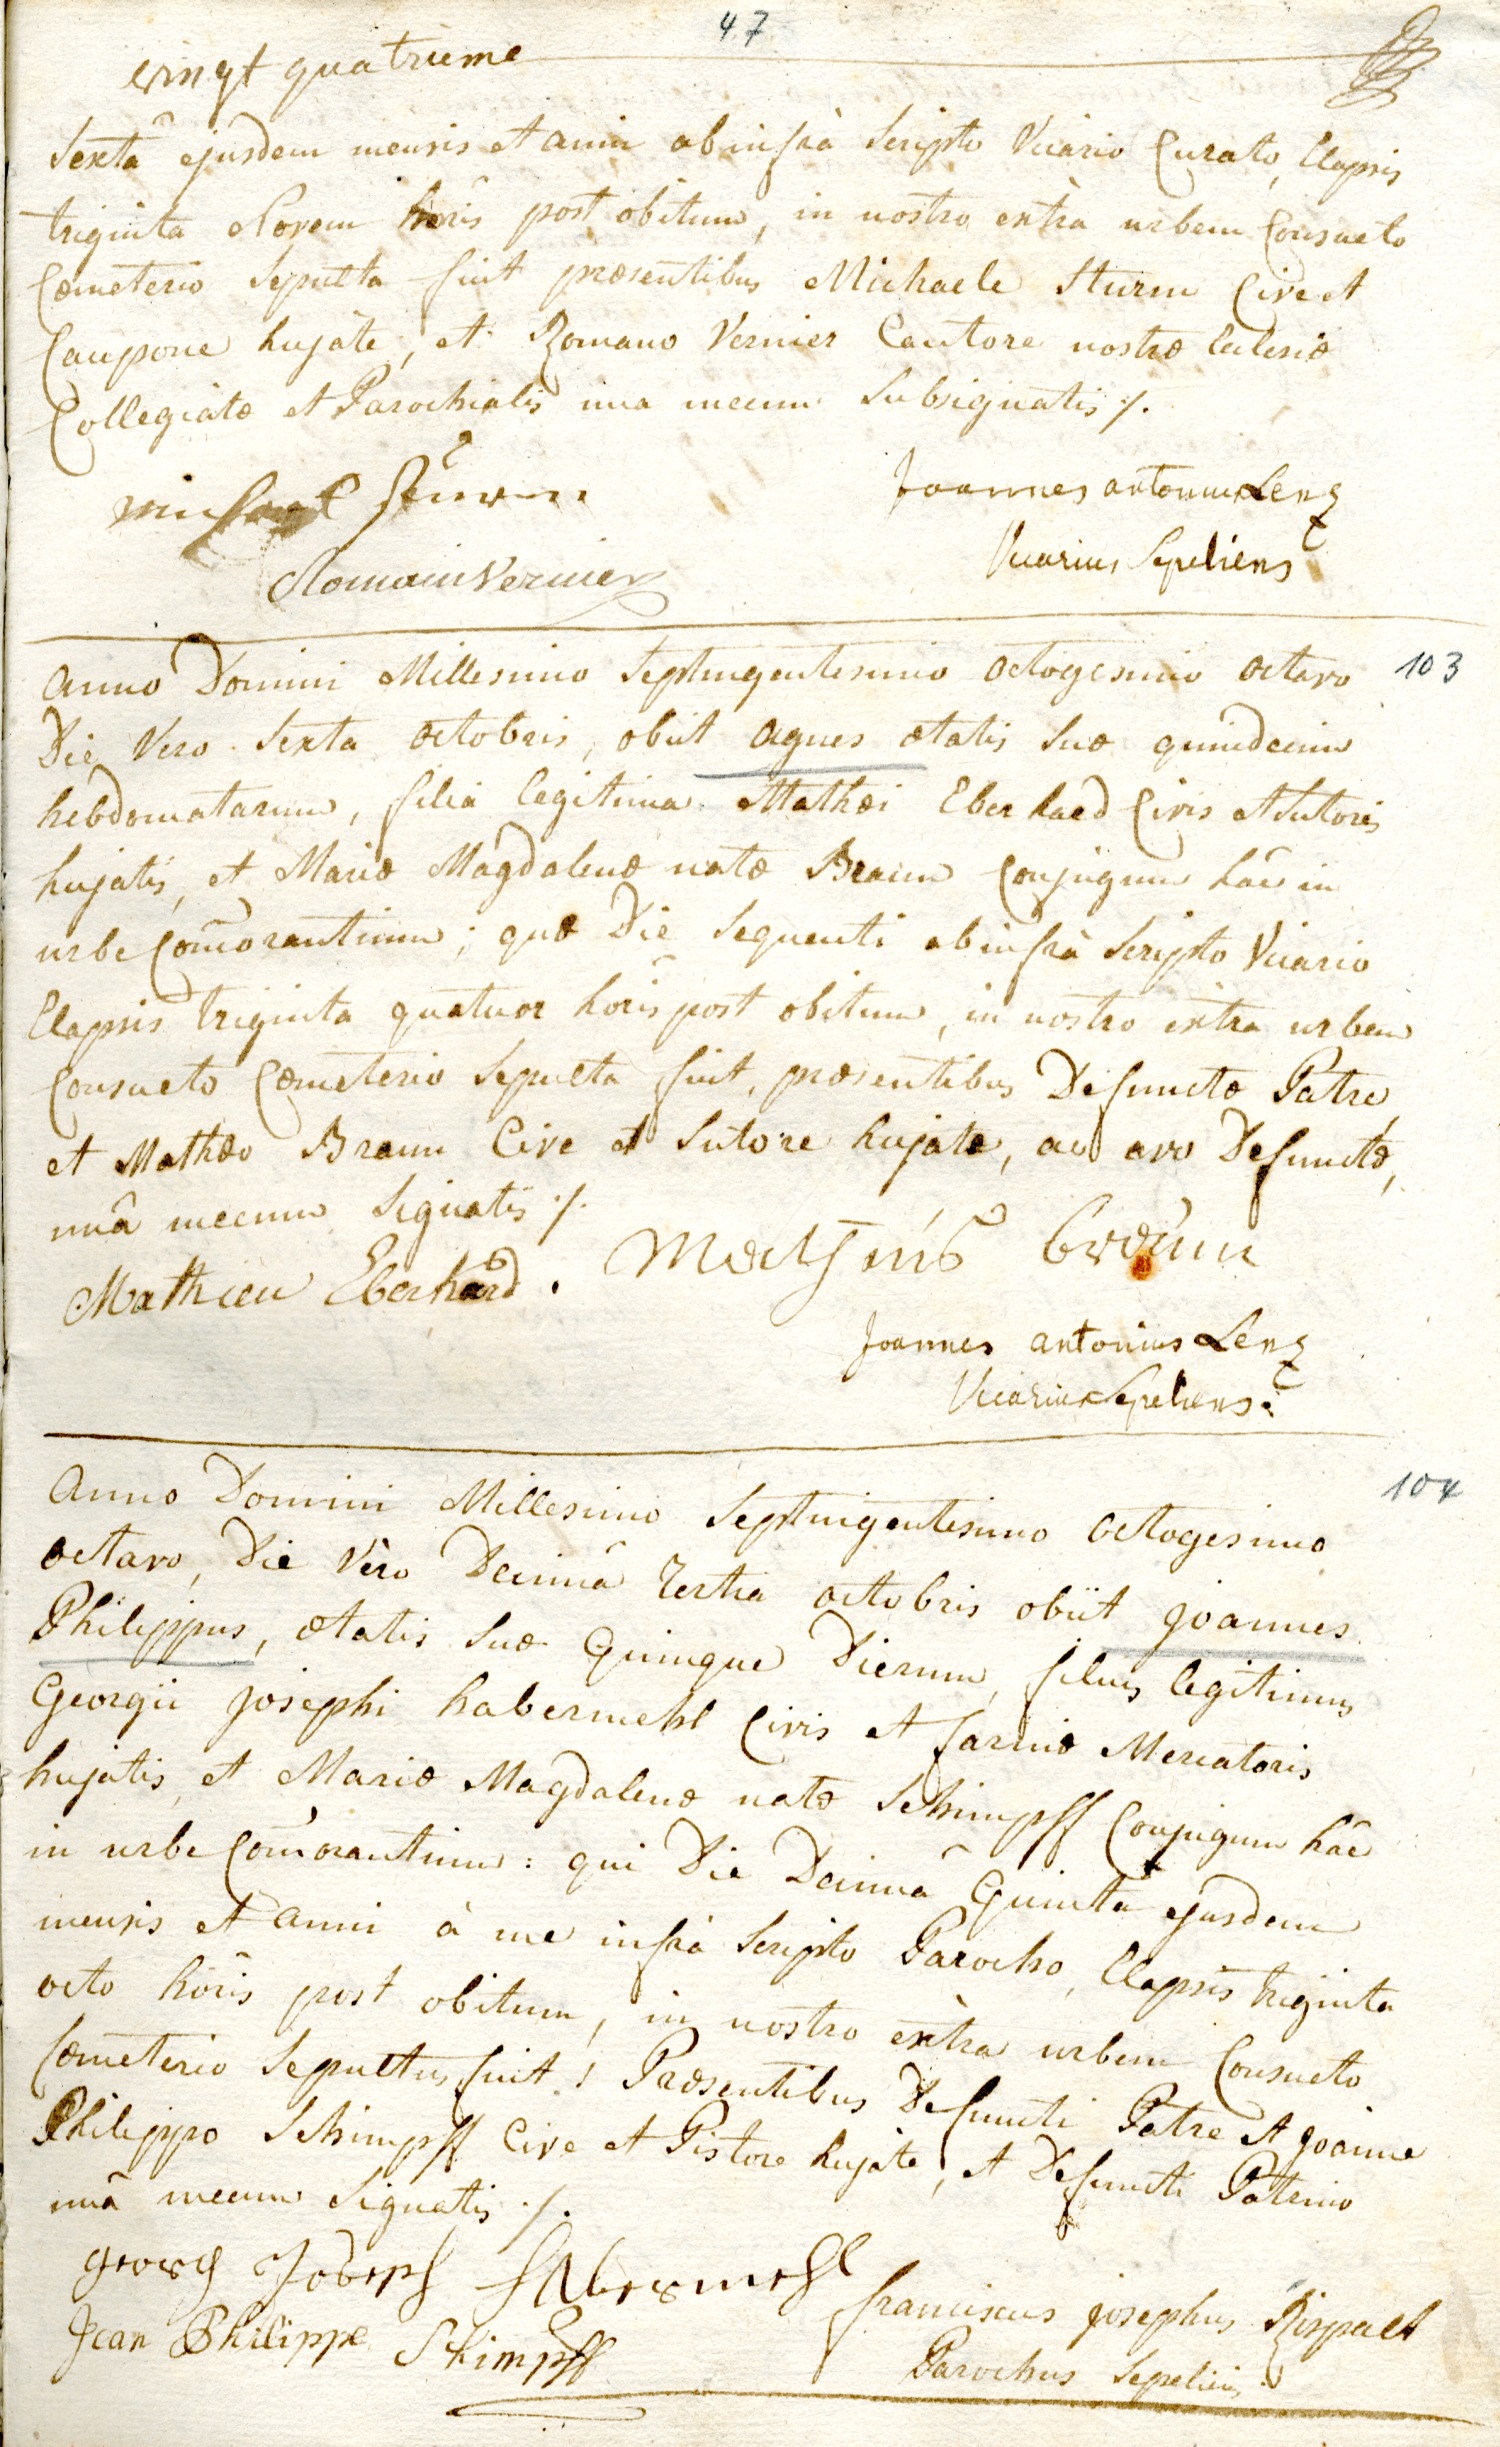 47
vingt quatrieme
Sextâ ejusdem mensis et anni ab infrà Scripto Vicario Curato, Elapsis
triginta Novem horis post obitum, in nostro extrà urbem Consueto
Cœmeterio Sepulta fuit præsentibus Michaele Sturm Cive et
Caupone hujate, et Romano Vernier Cantore nostræ Eclesiæ
Collegiatæ et Parochialis una mecum Subsignatis ./.
Michael Sturm
Joannes antonius Lenz
Romain Vernier
Vicarius Sepeliens
Anno Domini Millesimo Septingentesimo octogesimo octavo 103
Die Vero Sexta octobris, obiit Agnes ætatis Suæ quindecim
hebdomatarum, filia legitima Mathæi Eberhard Civis et Sutoris
hujatis, et Mariæ Magdalenæ natæ Braun Conjugum hâc in
urbe Com̄orantium; quæ Die Sequenti ab infrà Scripto Vicario
Elapsis triginta quatuor horis post obitum, in nostro extra urbem
Consueto Cœmeterio Sepulta fuit, præsentibus Defunctæ Patre,
et Mathæo Braun Cive et Sutore hujate, ac avo Defunctæ,
unâ mecum Signatis ./.
Mathieu Eberhard . Mathis braun
Joannes antonius Lenz
Vicarius Sepeliens.
Anno Domini Millesimo Septingentesimo octogesimo 104
octavo, Die Vèro Decimâ Tertia octobris obiit Joannes
Philippus, ætatis Suæ Quinque Dierum, filius legitimus
Georgii Josephi habermehl Civis et farinæ Mercatoris
hujatis, et Mariæ Magdalenæ natæ Schimpff Conjugum hâc
in urbe Com̄orantium: qui Die Decimâ Quintâ ejusdem
mensis et anni à me infrà Scripto Parocho, Elapsis triginta
octo horis post obitum, in nostro extra urbem Consueto
Cœmeterio Sepultus fuit; Præsentibus Defuncti Patre et Joanne
Philippo Schimpff Cive et Pistore hujate, et Defuncti Patrino
unâ mecum Signatis ./.
georg Joseph Habermehl
franciscus josephus Rispalt
Jean Philippe Schimpff
Parochus Sepeliens